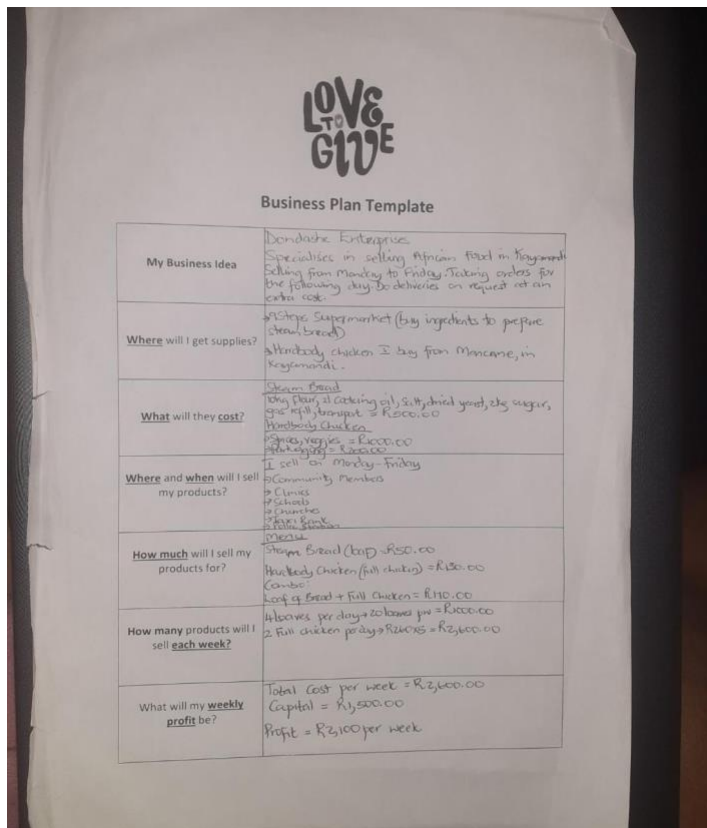 LOVE
TO
GIVE
Business Plan Template
My Business Idea
Dondashe Enterprise
Specialises in selling African Food in Kayamandi
Selling from Monday to Friday. Taking orders for
the following day. Do deliveries on request at an
extra cost.
Where will I get supplies?
Steps Supermarket (buy ingredients to prepare
steam bread)
Hardbody chicken I buy from Mancane, in
Kayamandi.
What will they cost?
Steam Bread
10kg flour, 2l cooking oil, salt, dried yeast, 2kg sugar,
gas refill, transport = R500.00
Hardbody Chicken
Spices, veggies = R1000.00
Packaging = R200.00
Where and when will I sell
my products?
I sell on Monday-Friday
→ Community Members
→ Clinics
→ Schools
→ Churches
→ Taxi Rank
→ Police Station
How much will I sell my
products for?
Menu
Steam Bread (loaf) = R50.00
Hardbody Chicken (full chicken) = R130.00
Combo:
Loaf of Bread + Full Chicken = R170.00
How many products will I
sell each week?
4 loaves per day → 20 loaves = R1000.00
2 Full chicken per day → R260x5 = R2,600.00
What will my weekly
profit be?
Total Cost per week = R2,600.00
Capital = R1,500.00
Profit = R2,100 per week